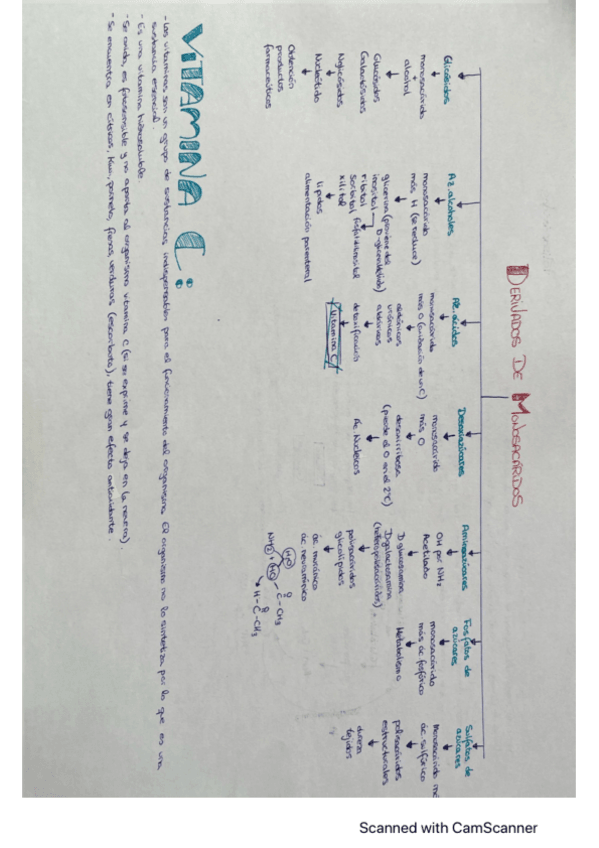 DERIVADOS DE MONOSACÁRIDOS
Glicósidos
monosacárido
alcohol
Glucósidos
Galactósidos
N-glicósidos
Nucleótido
Obtención
productos
farmaceúticos
Az. alcoholes
monosacárido
más H (se reduce)
glicerina (proviene del
D-gliceraldehído)
inositol
ribitol fosfatidilinositol
sorbitol
xilitol
lípidos
alimentación parenteral
Az. ácidos
monosacárido
más O (oxidación de un C)
aldónicos
urónicos
aldáricos
detoxificación
Vitamina C
Desoxiazúcares
monosacárido
más O
desoxirribosa
(pierde el O en el 2ºC)
Ac. Nucleicos
Aminoazúcares
OH por NH2
Acetilado
D glucosamina
D galactosamina
(heteropolisacáridos)
polisacáridos
glicolípidos
ác murámico
ác. neuramínico
H2O
NH2 + HO - C - CH3
O
H - C - CH3
O
Fosfatos de
azúcares
monosacárido
más ác fosfórico
Metabolismo
Sulfatos de
azúcares
monosacárido más
ác. sulfúrico
polisacáridos
estructurales
dureza
tejidos
VITAMINA C:
- Las vitaminas son un grupo de sustancias indispensables para el funcionamiento del organismo. El organismo no la sintetiza por lo que es una
sustancia esencial.
- Es una vitamina hidrosoluble
- Se oxida, es fotosensible y no aporta al organismo vitamina C (si se exprime y se deja en la nevera)
- Se encuentra en cítricos, kiwi, pimiento, fresas, verduras (escorbato), tiene gran efecto antioxidante.
Scanned with CamScanner